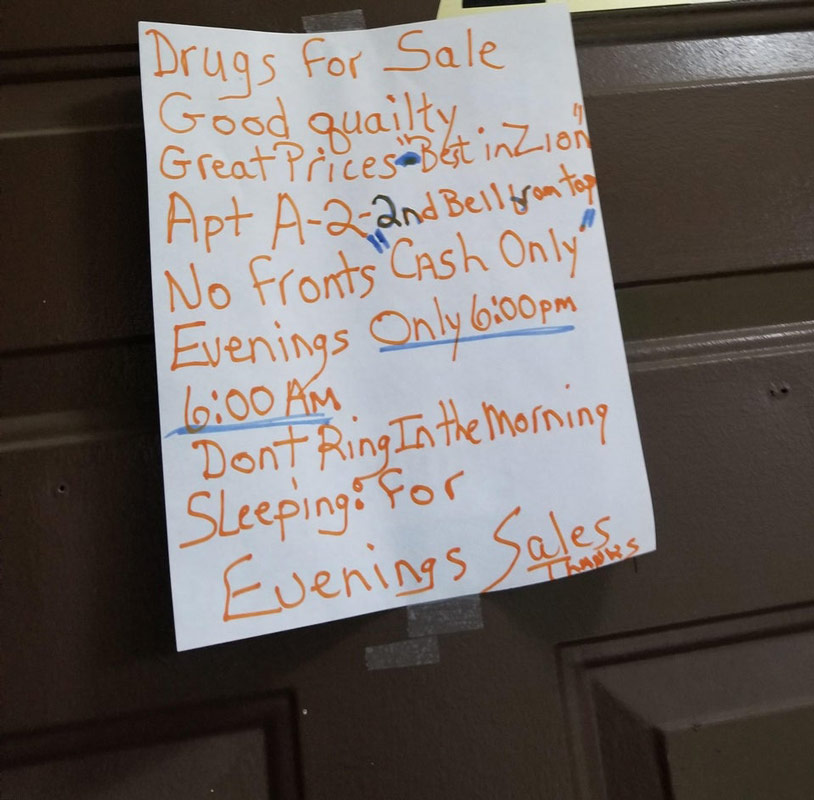 Drugs For Sale
Good quailty
Great Prices "Best in Zion"
Apt A-2-2nd Bell from top
No fronts "Cash Only"
Evenings Only 6:00pm
6:00 AM
Dont Ring In the Morning
Sleeping: For
Evenings Sales
Thanks